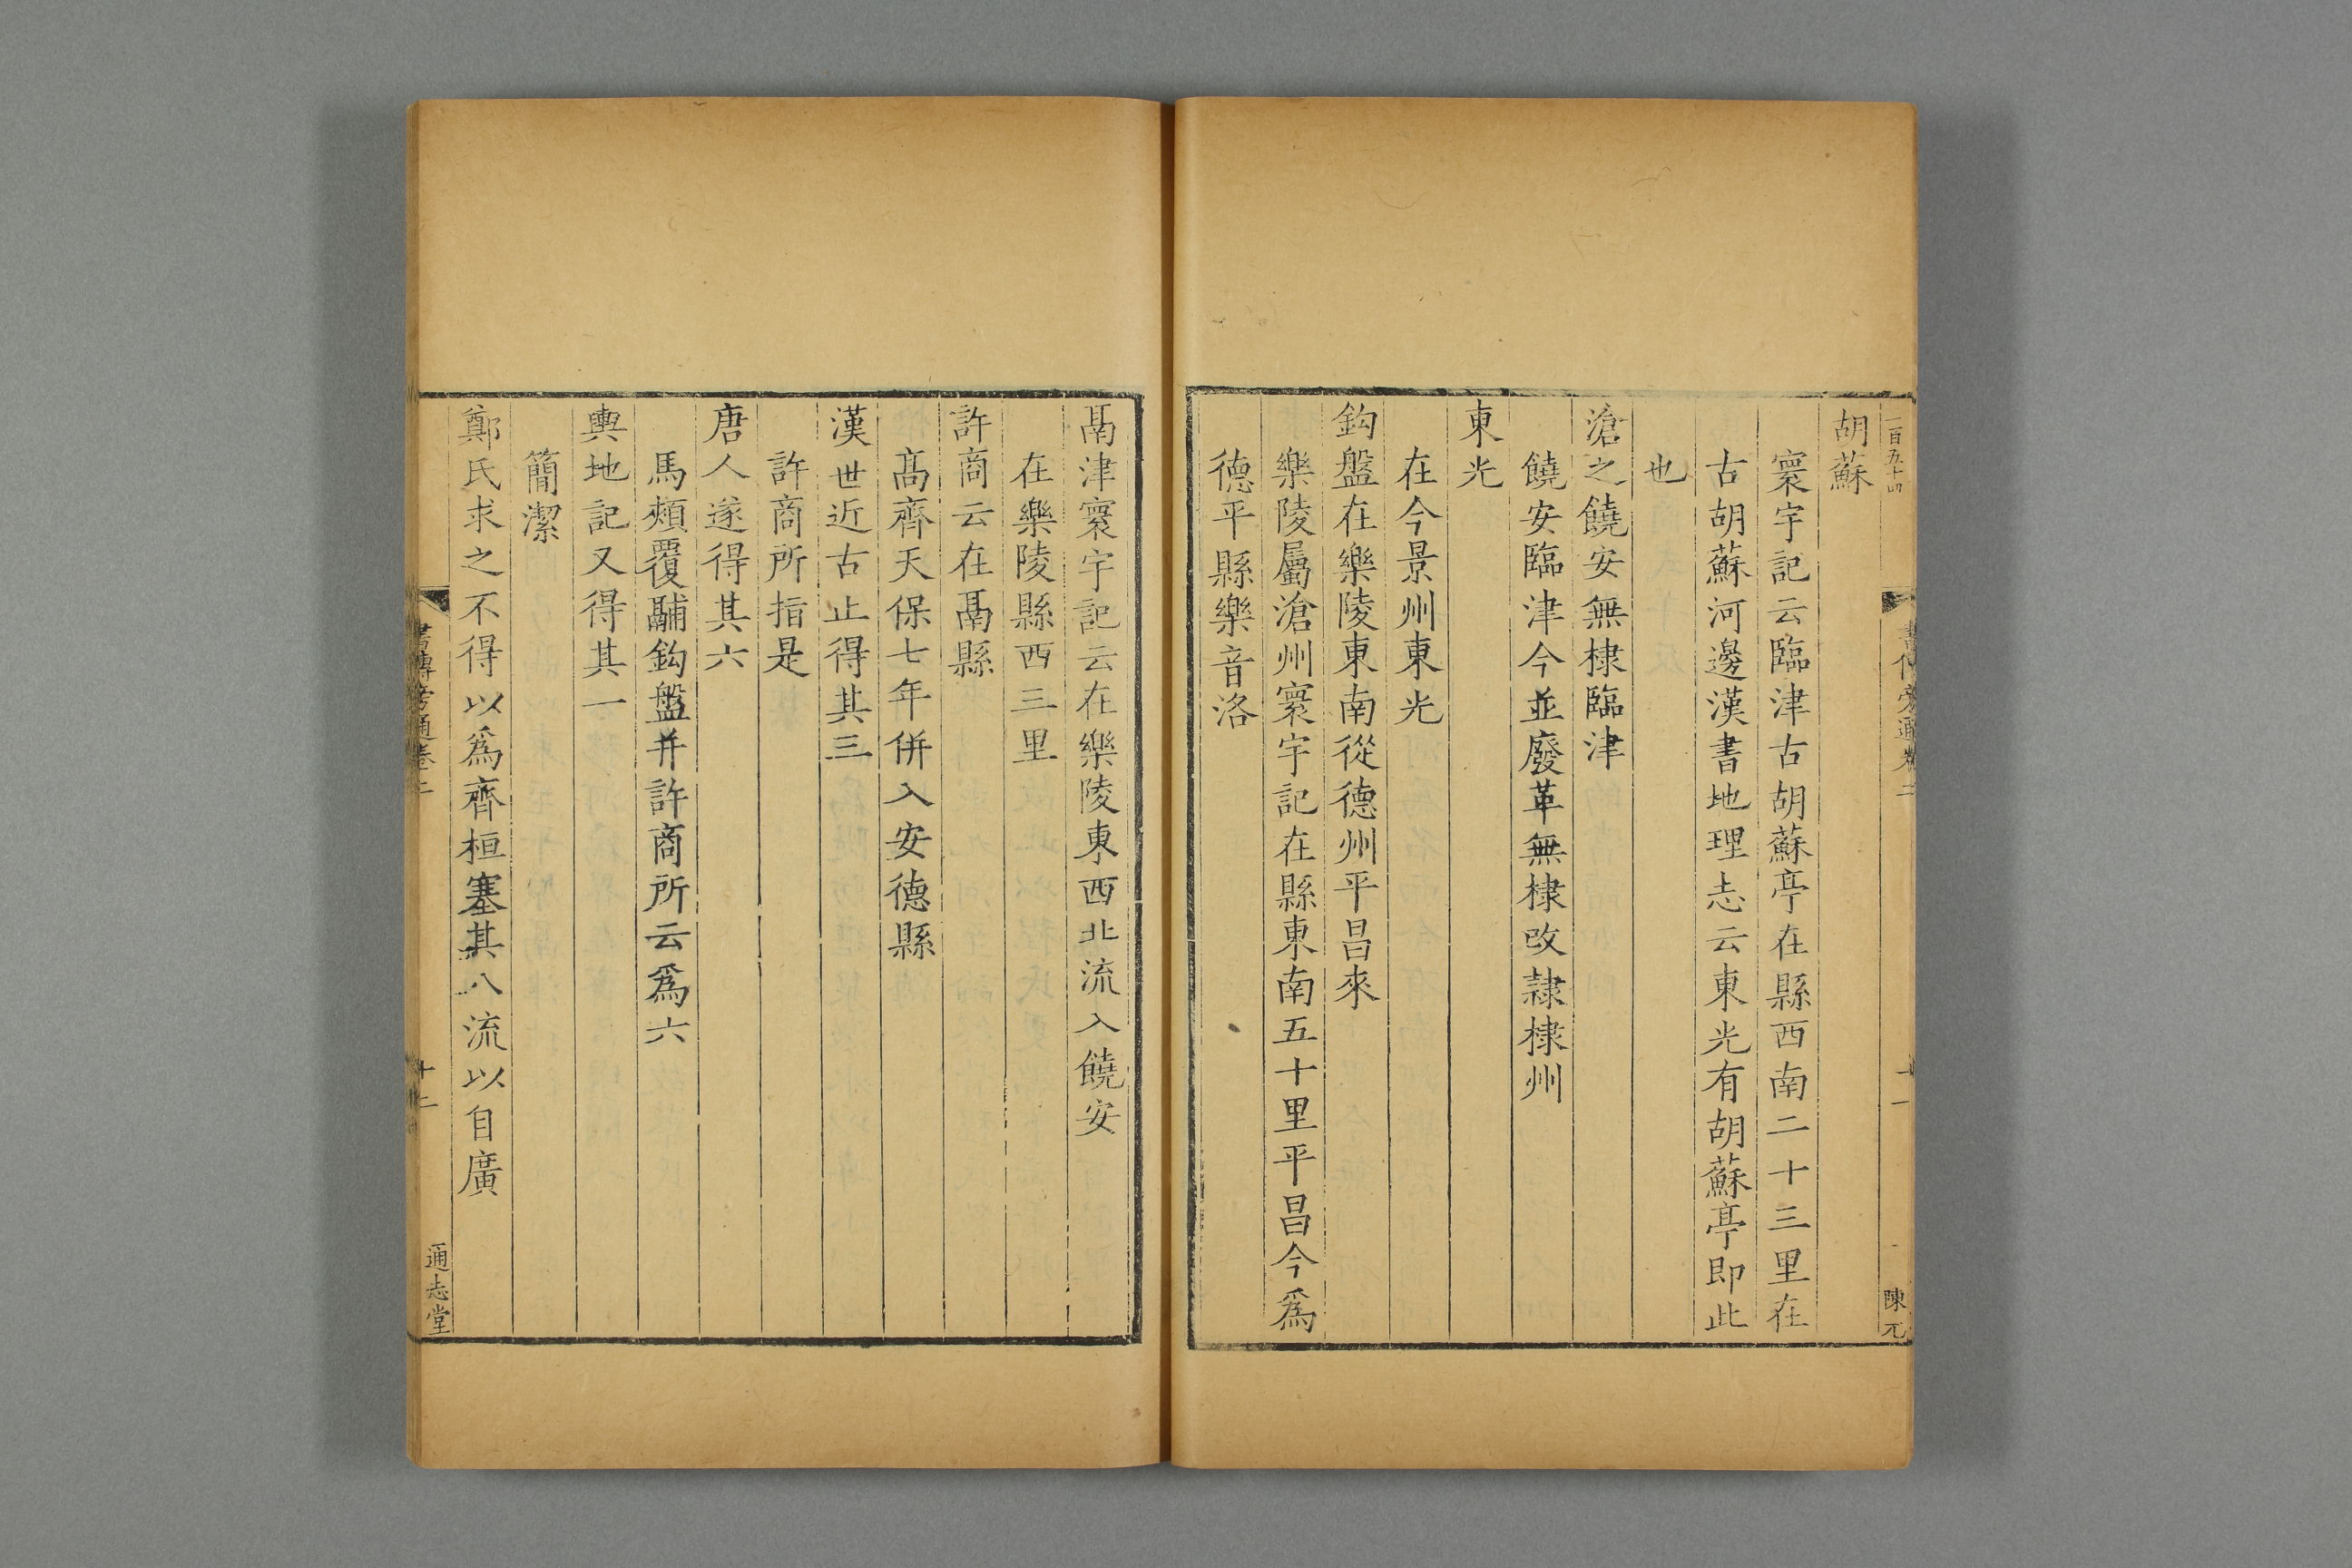 一百五十四
十一
陳元
胡蘇
寰宇記云臨津古胡蘇亭在縣西南二十三里在
古胡蘇河邊漢書地理志云東光有胡蘇亭即此
也
滄之饒安無棣臨津
饒安臨津今並廢革無棣改隷棣州
東光
在今景州東光
鈎盤在樂陵東南從德州平昌來
樂陵屬滄州寰宇記在縣東南五十里平昌今爲
德平縣樂音洛
鬲津寰宇記云在樂陵東西北流入饒安
在樂陵縣西三里
許商云在鬲縣
髙齊天保七年併入安德縣
漢世近古止得其三
許商所指是
唐人遂得其六
馬頰覆鬴鈎盤并許商所云爲六
輿地記又得其一
簡潔
鄭氏求之不得以爲齊桓塞其八流以自廣
書傳旁通卷二
十二
通志堂